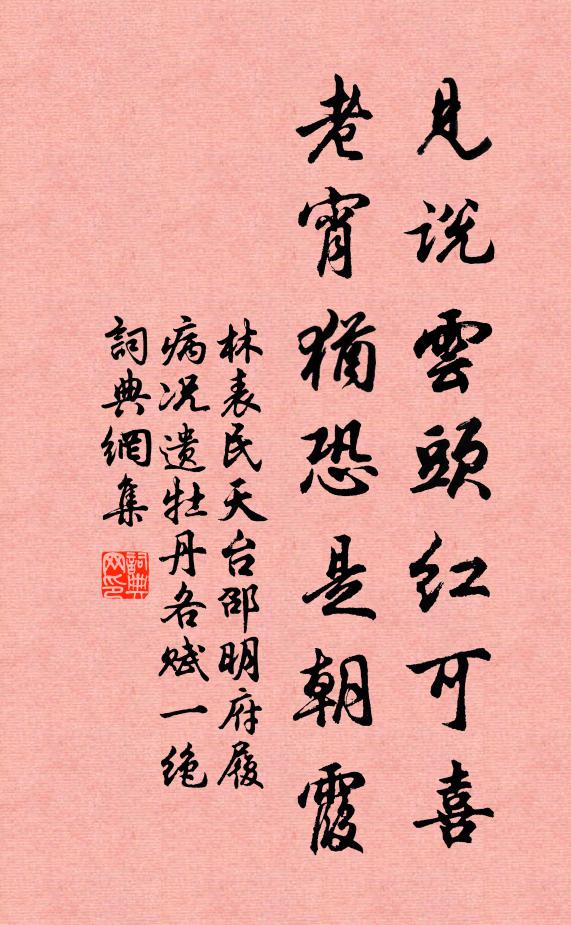 見說雲頭紅可喜
老宵猶恐是朝霞
林表民天台邵明府履
病况遗牡丹各赋一绝
詞典網集
詞典網印